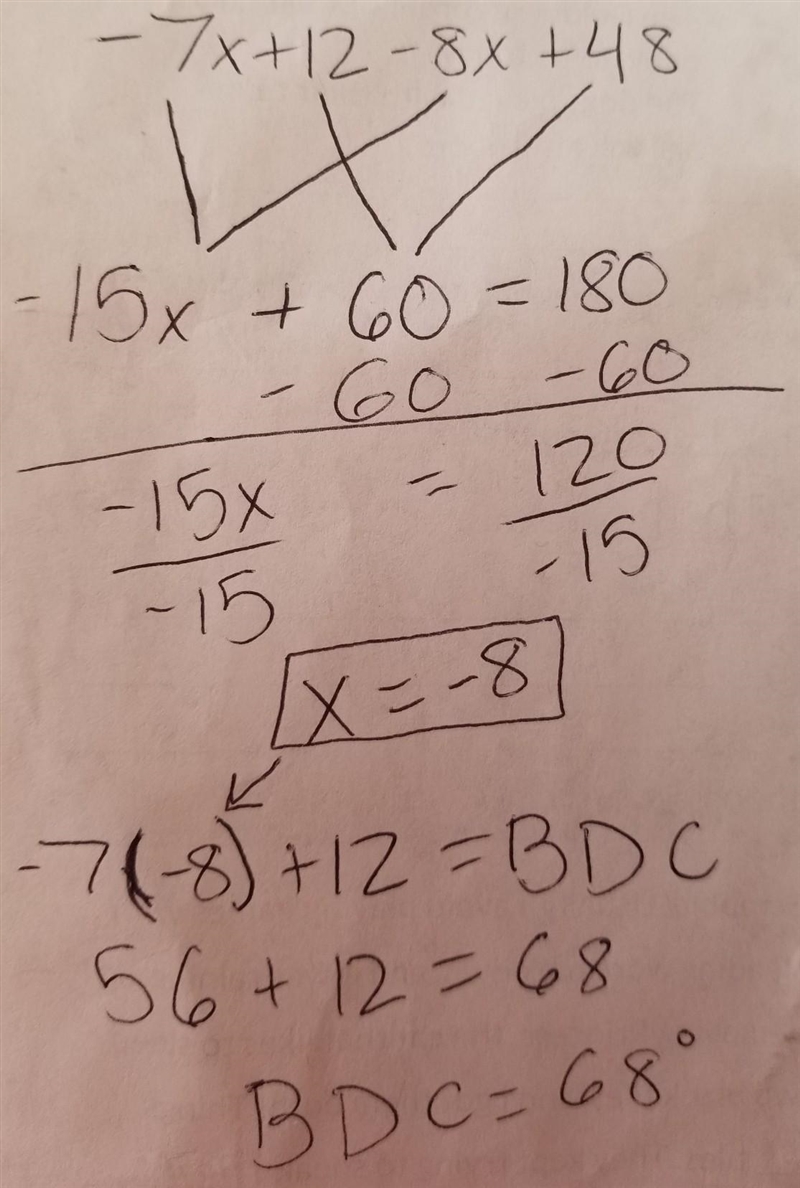 -7x+12-8x+48
-15x + 60 = 180
- 60 -60
-15x = 120
-15 -15
x = -8
-7(-8)+12 = BDC
56 + 12 = 68
BDC = 68°